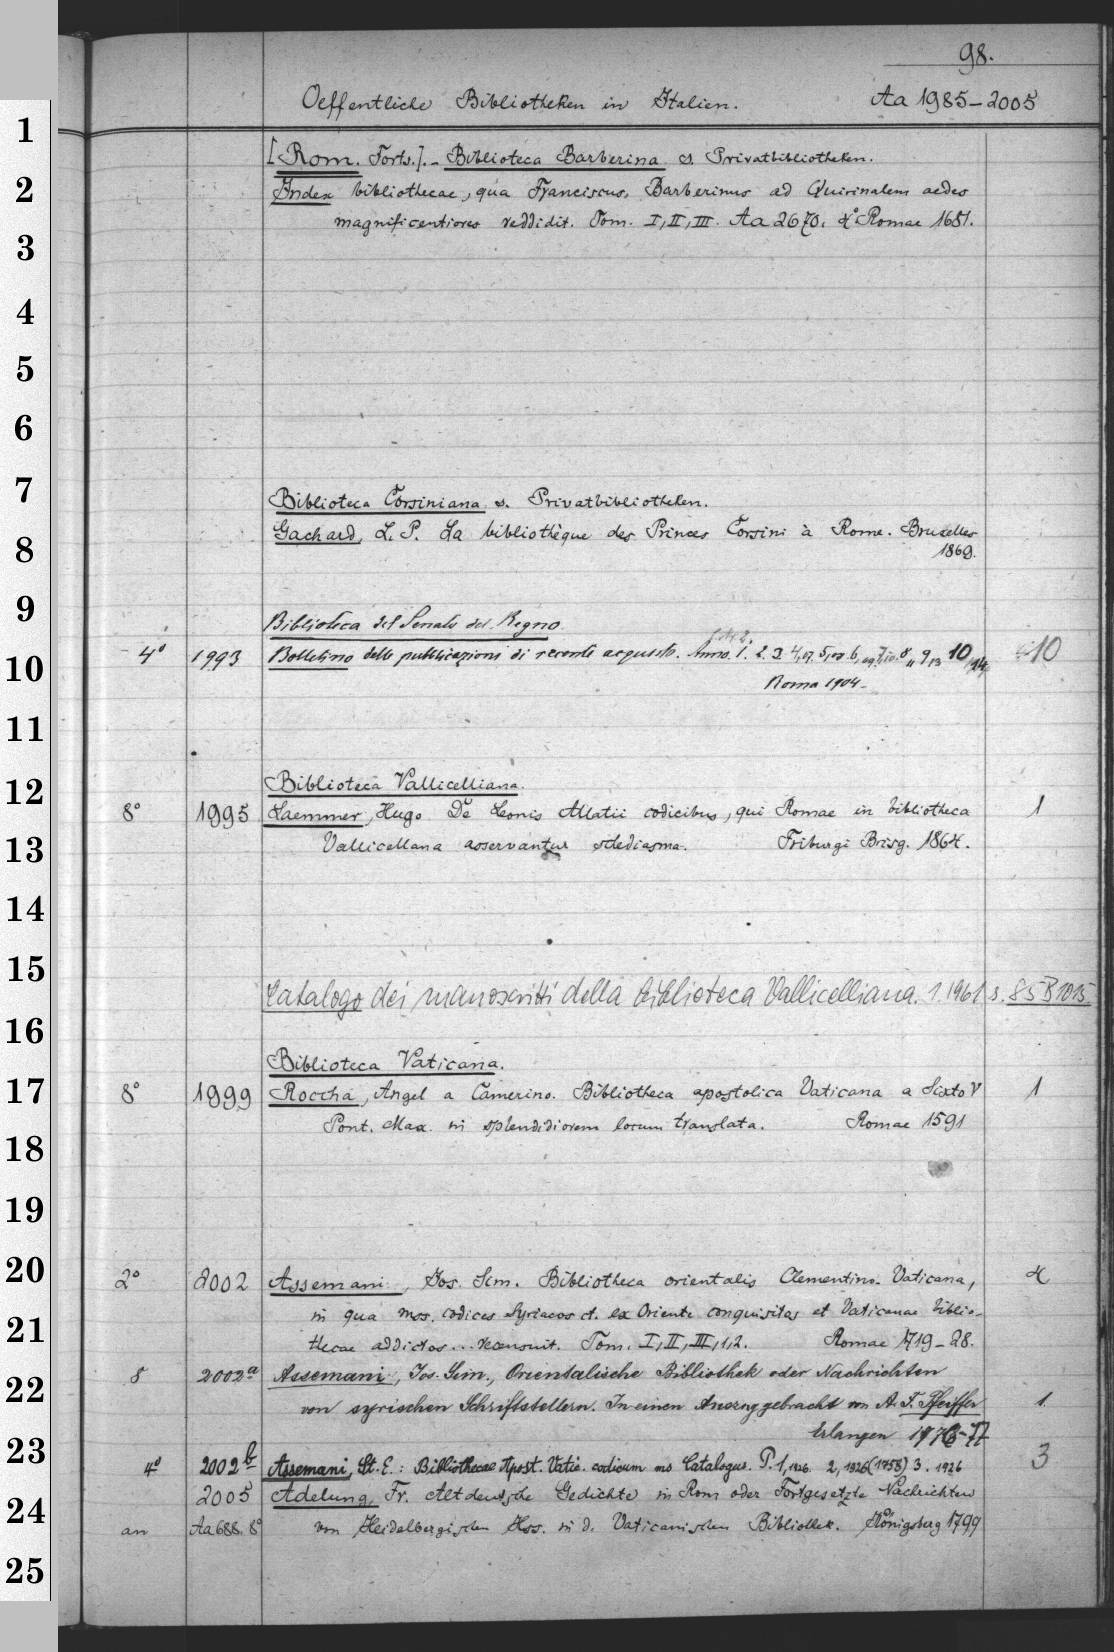 98.
Oeffentliche Bibliotheken in Italien. Aa 1985-2005
[Rom. Forts.]. - Biblioteca Barberina s. Privatbibliotheken.
Index bibliothecae, qua Franciscus, Barberinus ad Quirinalem aedes
magnificentiores reddidit. Tom. I, II, III. Aa 2670. 2° Romae 1681.
Biblioteca Corsiniana s. Privatbibliotheken.
Gachard, L. P. La bibliothèque des Princes Corsini à Rome. Bruxelles
1869.
Biblioteca del Senato del Regno
4° 1993 Bolletino delle pubblicazioni di recente acquisto. Anno. 1. 2. 3. 4,07. 5,08. 6,09. 7,10. 8,11 9,13 10/14 10
Roma 1904-
Biblioteca Vallicelliana.
8° 1995 Laemmer, Hugo. De Leonis Allatii codicibus, qui Romae in bibliotheca 1
Vallicellana asservantur schediasma. Friburgi Brisg. 1864.
Catalogo dei manoscritti della biblioteca Vallicelliana. 1.1961 s. 85 B 1015
Biblioteca Vaticana.
8° 1999 Roccha, Angel a Camerino. Bibliotheca apostolica Vaticana a Sixto V 1
Pont. Max. in splendidiorem locum translata. Romae 1591
2° 2002 Assemani, Jos. Sim. Bibliotheca orientalis Clementino-Vaticana, 4
in qua mss. codices Syriacos ct. ex Oriente conquisitos et Vaticanae biblio-
thecae addictos... recensuit. Tom. I, II, III, 1, 2. Romae 1719-28.
8 2002a Assemani, Jos. Sim., Orientalische Bibliothek oder Nachrichten
von syrischen Schriftstellern. In einen Auszug gebracht von A. F. Pfeiffer 1.
Erlangen 1776-77
4° 2002b Assemani, St. E.: Bibliothecae Apost. Vatic. codicum ms Catalogus. P. 1, 1926. 2, 1926 (1758) 3. 1926 3
2005 Adelung, Fr. Altdeutsche Gedichte in Rom oder Fortgesetzte Nachrichten
an Aa 688. 8° von Heidelbergischen Hss. in d. Vaticanischen Bibliothek. Königsberg 1799
1
2
3
4
5
6
7
8
9
10
11
12
13
14
15
16
17
18
19
20
21
22
23
24
25